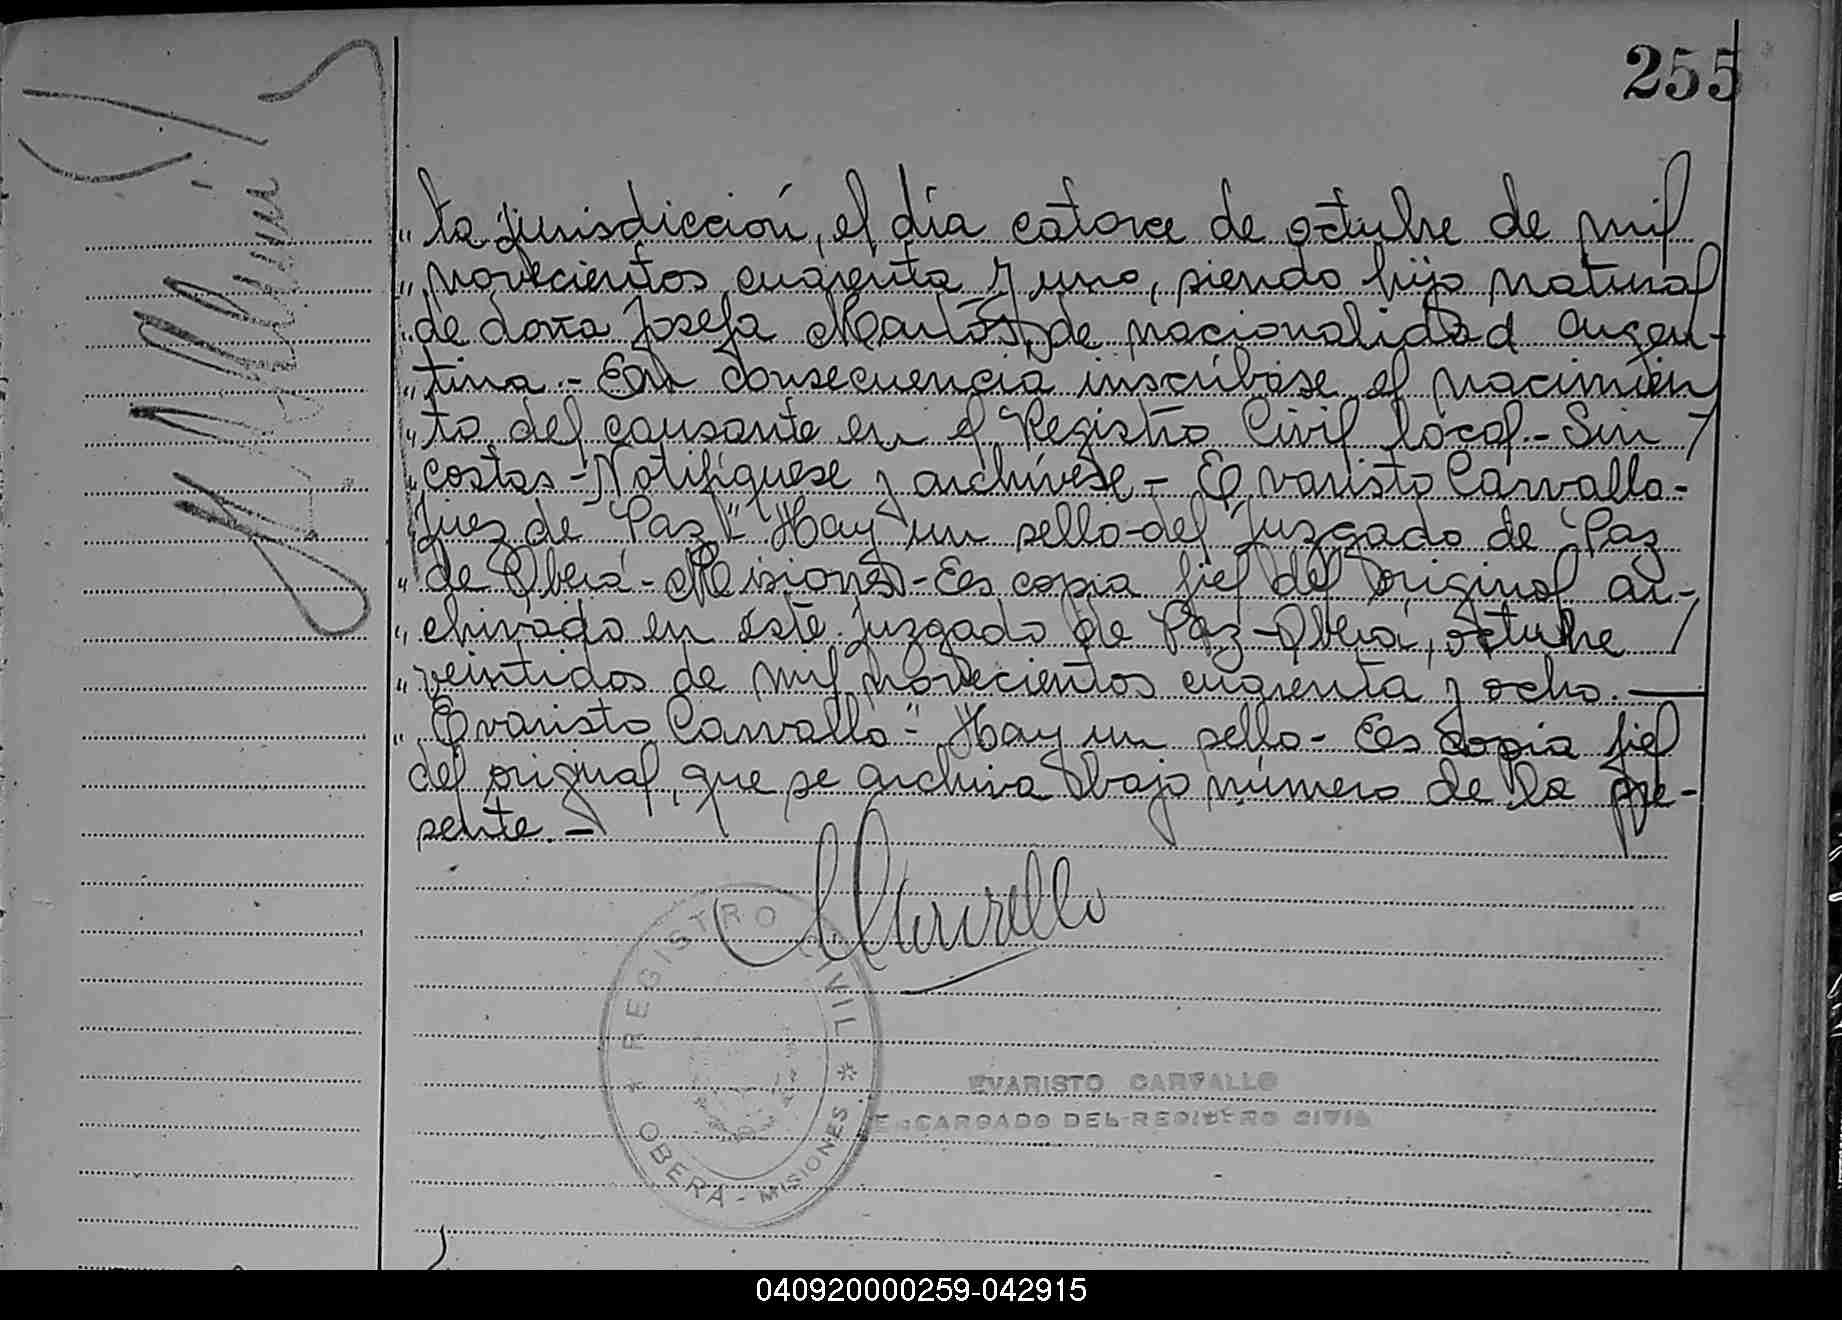 255
"ta jurisdicción, el día catorce de octubre de mil
"novecientos cuarenta y uno, siendo hijo natural
"de doña Josefa Martos, de nacionalidad argen-
"tina.- En consecuencia inscríbase el nacimien
"to del causante en el Registro Civil local.- Sin
"costas-Notifíquese y archívese- Evaristo Carvallo-
"Juez de Paz" Hay un sello-del Juzgado de Paz
"de Oberá- Misiones-Es copia fiel del original ar-
"chivado en éste Juzgado de Paz-Oberá, octubre
"veintidos de mil novecientos cuarenta y ocho.-
"Evaristo Carvallo"- Hay un sello- Es copia fiel
del original, que se archiva bajo número de la pre-
sente.-
REGISTRO CIVIL
* OBERA - MISIONES *
EVARISTO CARVALLO
ENCARGADO DEL REGISTRO CIVIL
040920000259-042915